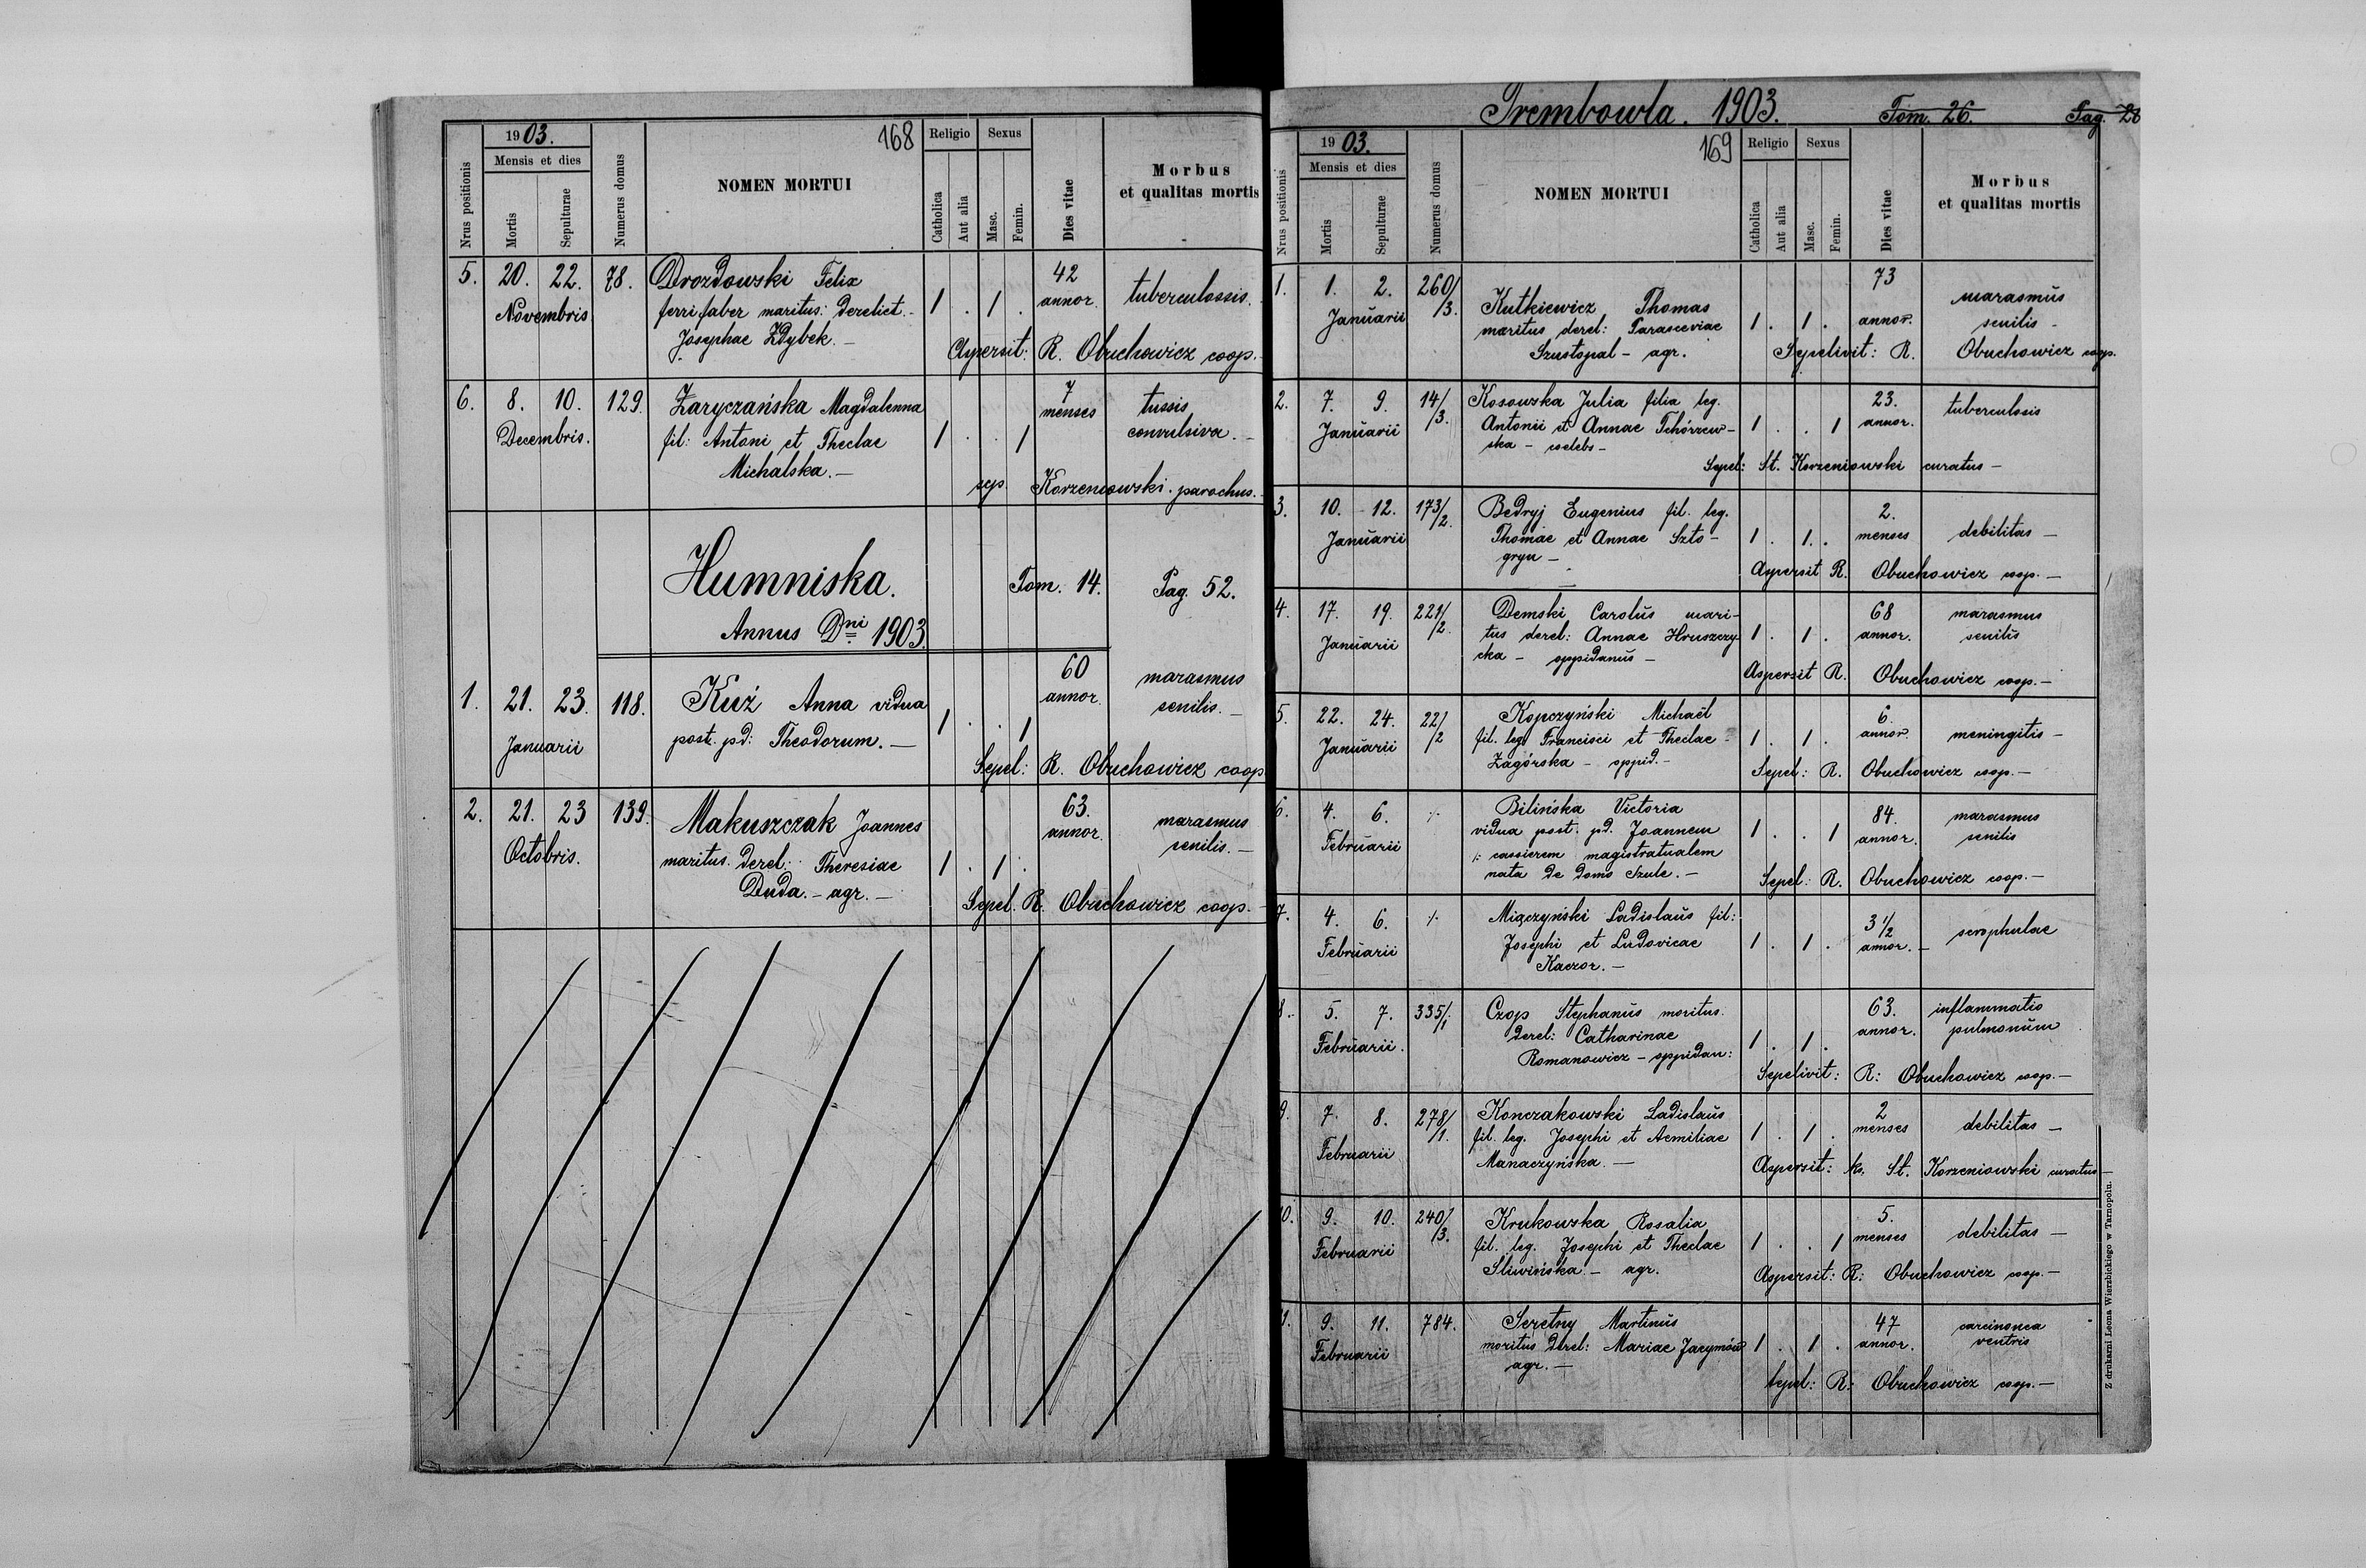 168
1903.
Mensis et dies
Nrus positionis
Mortis
Sepulturae
Numerus domus
NOMEN MORTUI
Religio
Catholica
Aut alia
Sexus
Masc.
Femin.
Dies vitae
Morbus
et qualitas mortis
5. 20. 22. 78. Drozdowski Felix 1 . 1 . 42 tuberculossis.
Novembris ferri faber maritus: derelict. annor.
Josephae Zdybek.
Aspersit: R. Obuchowicz coop.
6. 8. 10. 129. Zaryczańska Magdalenna 1 . . 1 7 tussis
Decembris. fil: Antoni et Theclae menses convulsiva.
Michalska.
sep. Korzeniowski parochus.
Humniska. Tom. 14. Pag. 52.
Annus Dni 1903.
1. 21. 23. 118. Kuź Anna vidua 1 . . 1 60 marasmus
Januarii post. pd: Theodorum. annor. senilis.
Sepel: R. Obuchowicz coop
2. 21. 23 139. Makuszczak Joannes 1 . 1 . 63. marasmus
Octobris. maritus. derel: Theresiae annor. senilis.
Duda. - agr.
Sepel. R. Obuchowicz coop.
Trembowla. 1903. Tom. 26. Pag. 28
169
1903.
Mensis et dies
Nrus positionis
Mortis
Sepulturae
Numerus domus
NOMEN MORTUI
Religio
Catholica
Aut alia
Sexus
Masc.
Femin.
Dies vitae
Morbus
et qualitas mortis
1. 1. 2. 260/3. Kutkiewicz Thomas 1 . 1 . 73 marasmus
Januarii maritus derel: Parasceviae annor. senilis
Szustopal - agr. Sepelivit: R. Obuchowicz coop.
2. 7. 9. 14/3. Kosowska Julia filia leg. 1 . . 1 23. tuberculosis
Januarii Antonii et Annae Tchórzew- annor.
ska - coelebs
Sepel: St. Korzeniowski curatus
3. 10. 12. 173/2. Bedryj Eugenius fil. leg. 1 . 1. . 2. debilitas
Januarii Thomae et Annae Szto- menses
gryn
Aspersit R. Obuchowicz coop.
4. 17. 19. 221/2. Demski Carolus mari- 1 . 1 . 68 marasmus
Januarii tus derel: Annae Hruszczy- annor. senilis
cka - oppidanus
Aspersit R. Obuchowicz coop.
5. 22. 24. 22/2 Kopczyński Michaël 1 . 1 . 6. meningitis
Januarii fil. leg. Francisci et Theclae annor.
Zagórska - oppid.
Sepel: R. Obuchowicz coop.
6. 4. 6. Bilińska Victoria 1 . . 1 84. marasmus
Februarii vidua post. pd. Joannem annor. senilis
cassierem magistratualem
nata de domo Szulc.
Sepel: R. Obuchowicz coop.
7. 4. 6. Miączyński Ladislaus fil: 1 . 1 . 3 1/2 scrophulae
Februarii Josephi et Ludovicae annor.
Kaczor.
8. 5. 7. 335/1 Czop Stephanus moritus. 1 . 1 . 63. inflammatio
Februarii. derel: Catharinae annor. pulmonum
Romanowicz - oppidan:
Sepelivit: R: Obuchowicz coop.
9. 7. 8. 278/1. Konczakowski Ladislaus 1 . 1 . 2 debilitas
Februarii fil. leg. Josephi et Aemiliae menses
Manaczyńska.
Aspersit: ks. St. Korzeniowski curatus
10. 9. 10. 240/3. Krukowska Rosalia 1 . . 1 5. debilitas
Februarii fil. leg. Josephi et Theclae menses
Sliwińska - agr.
Aspersit: R: Obuchowicz coop.
11. 9. 11. 784. Seretny Martinus 1 . 1 . 47 carcinonca
Februarii moritus derel: Mariae Jacymów annor. ventris
agr.
Sepel: R: Obuchowicz coop.
Z drukarni Leona Wierzbickiego w Tarnopolu.